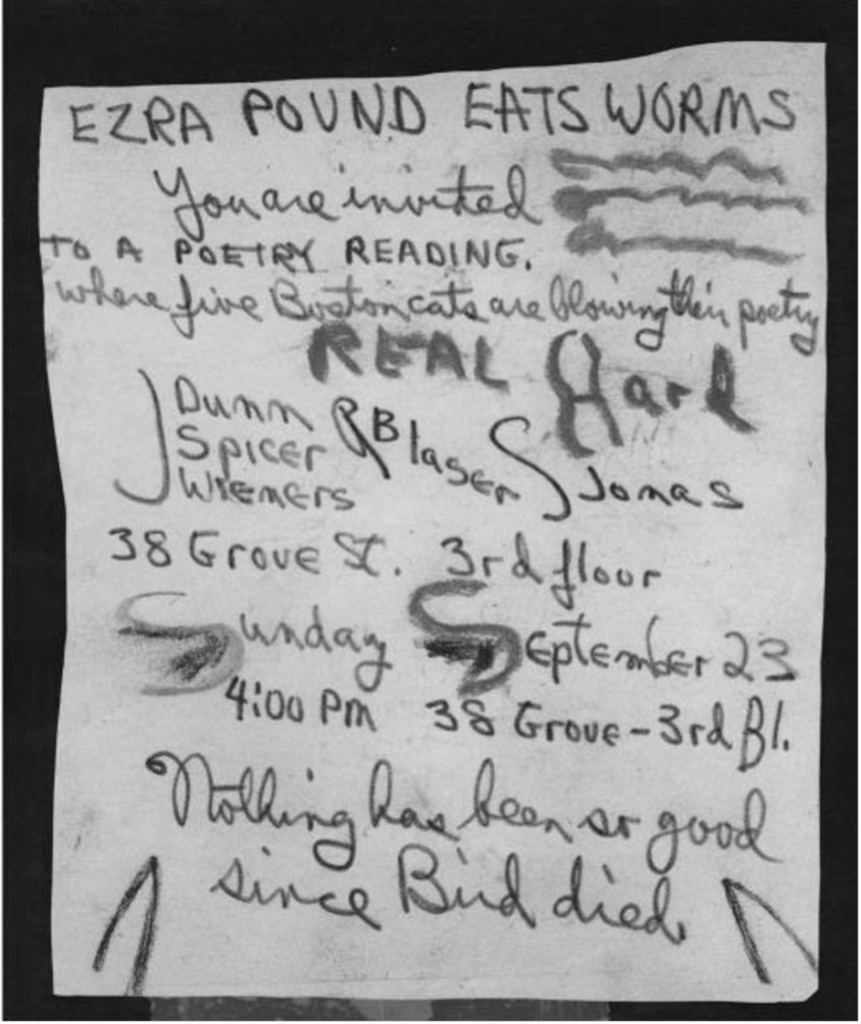 EZRA POUND EATS WORMS
You are invited
TO A POETRY READING.
where five Boston cats are blowing their poetry
REAL Hard
Dunn
Spicer
Wieners
Blaser
Jonas
38 Grove St. 3rd floor
Sunday September 23
4:00 PM 38 Grove - 3rd fl.
Nothing has been so good
since Bird died.